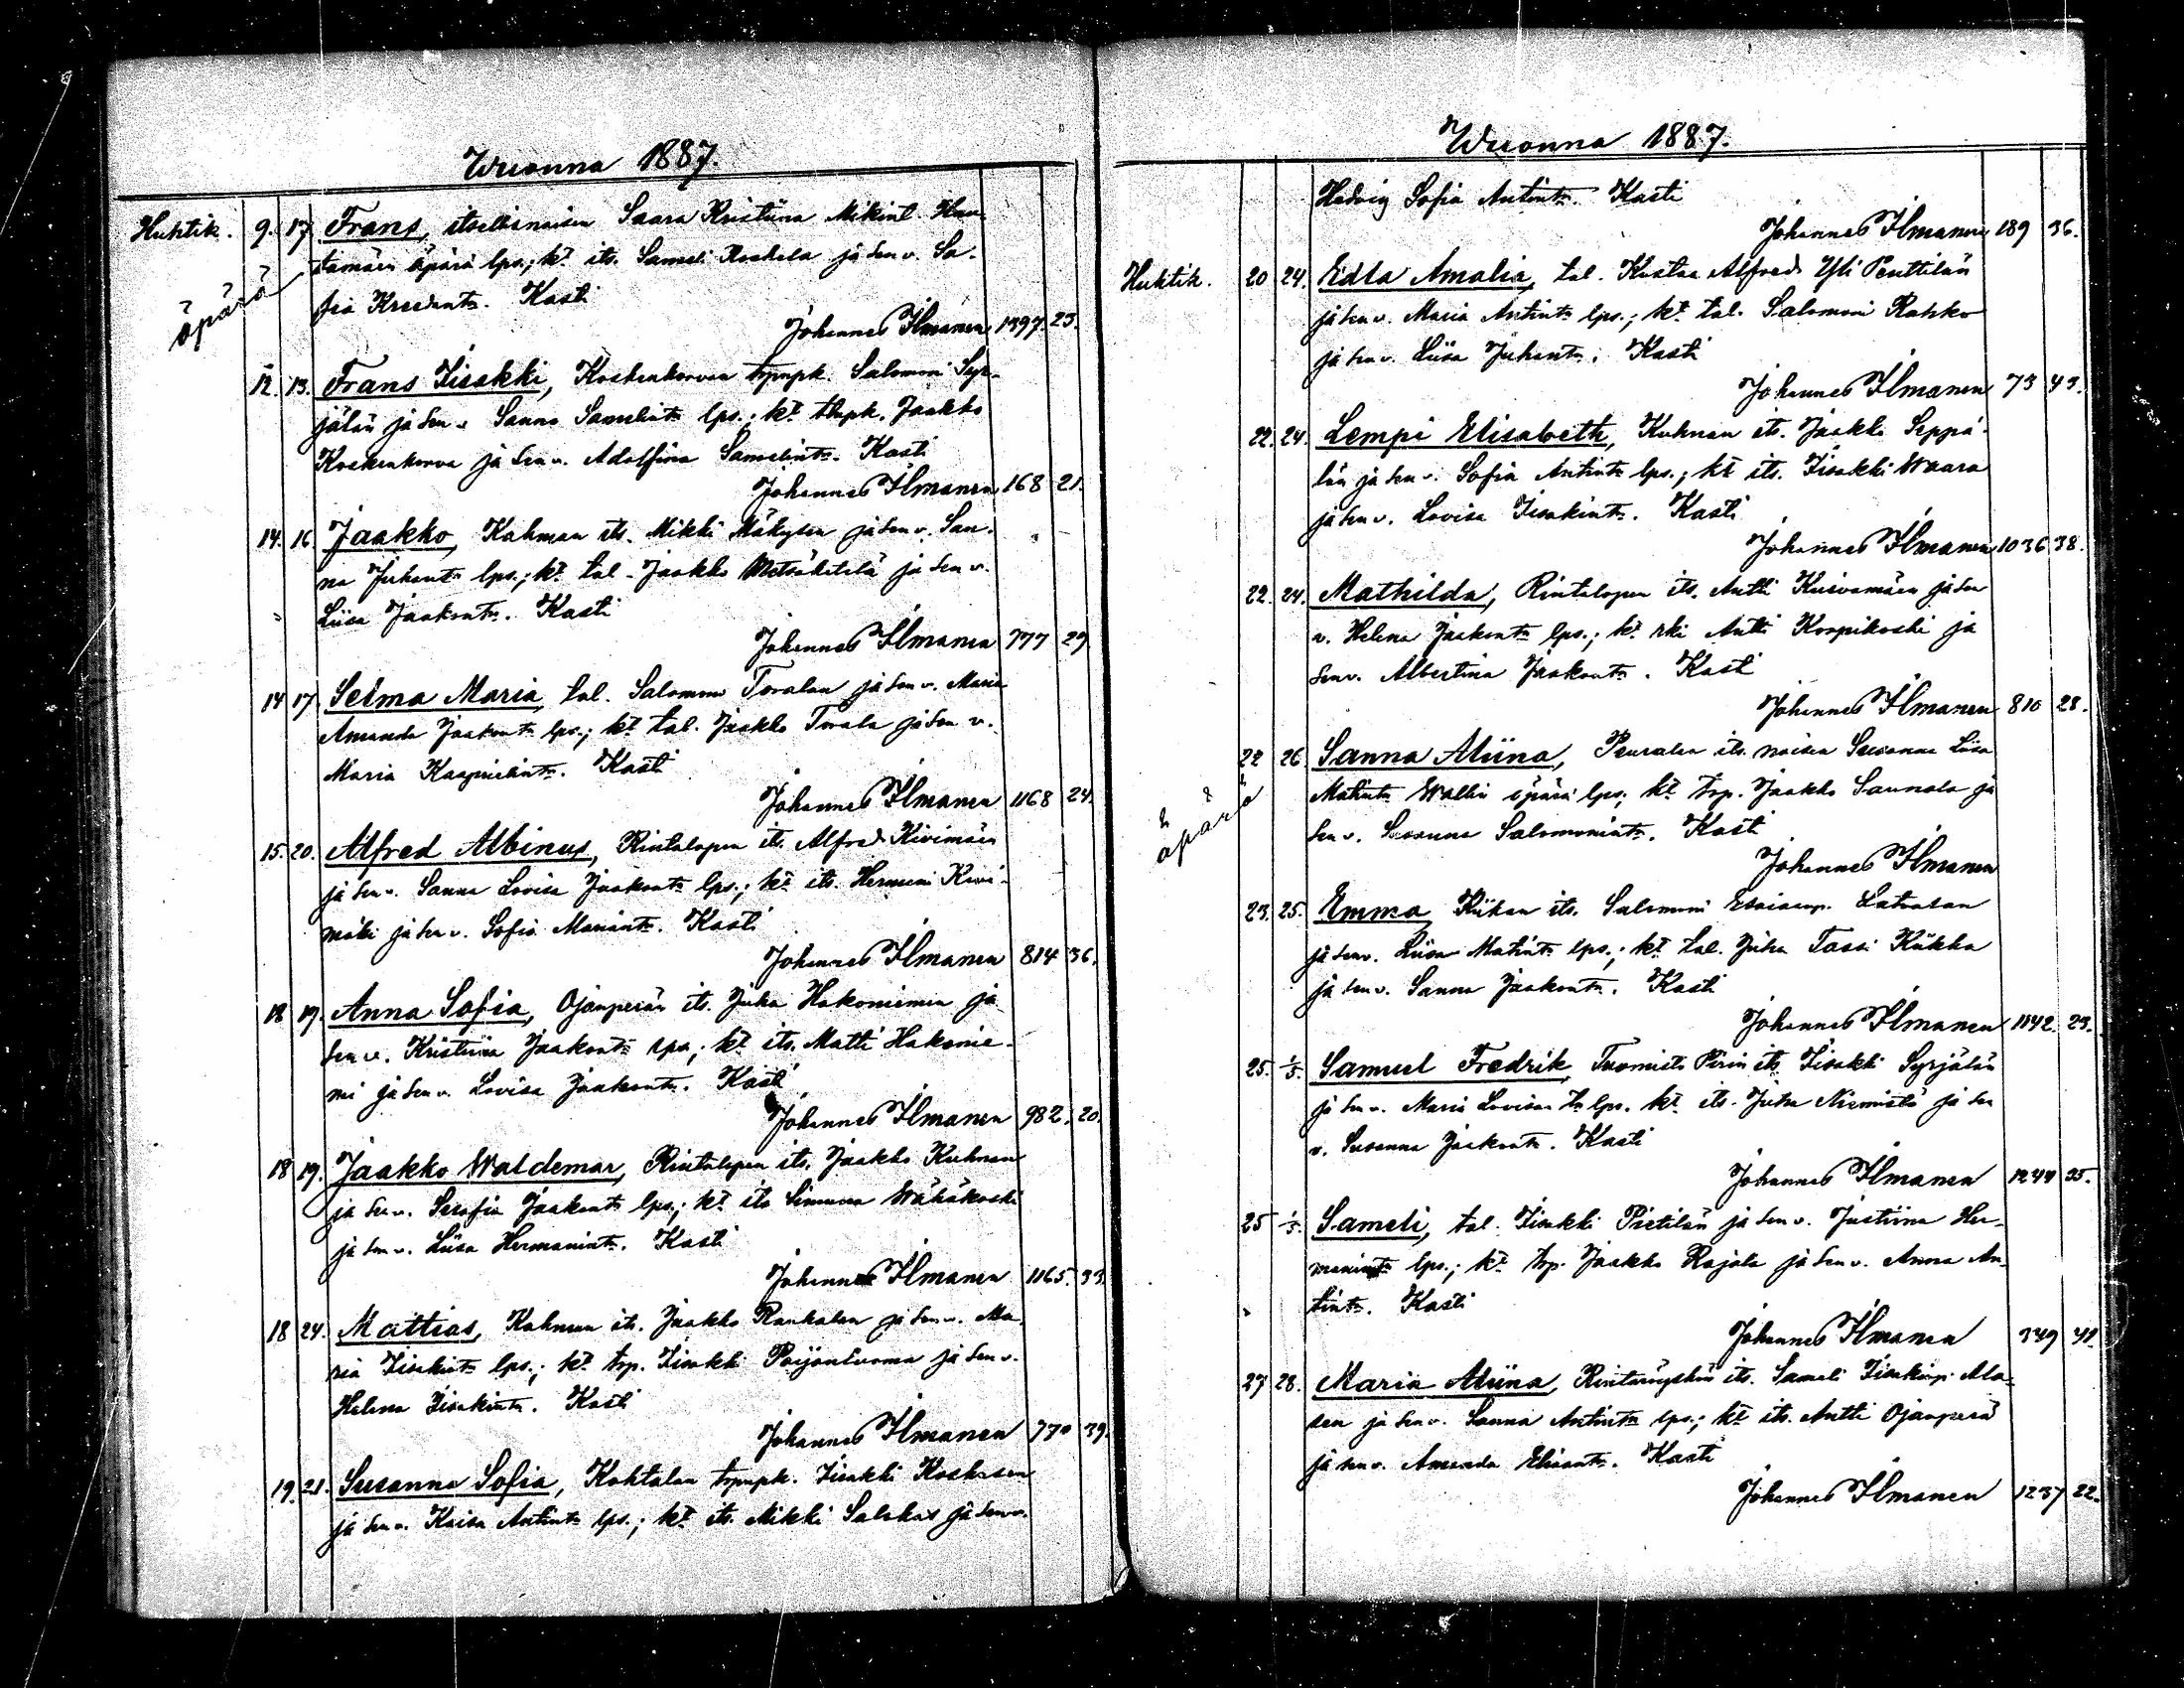 Wuonna 1887.
Huhtik. 9. 17. Frans, itsellisnaisen Saara Kristiina Mikint Hau-
tamäen äpärä lps.; kt its. Sameli Koskela ja sen v. So-
äpärä
fia Kreetant. Kasti
Johannes Ilmanen 1397. 23.
12. 13. Frans Iisakki, Koskenkorvan trpnpk. Salomon Syr-
jälän ja sen v. Sanna Samelint lps.; kt tlnpk. Jaakko
Koskenkorva ja sen v. Adolfina Samelint. Kasti
Johannes Ilmanen 168 21.
14. 16. Jaakko, Kahman its. Mikki Mäkysen ja sen v. San-
na Juhant lps.; kt tal. Jaakko Metsäketelä ja sen v.
Liisa Jaakont. Kasti
Johannes Ilmanen 777 29
14 17. Selma Maria, tal. Salomon Toralan ja sen v. Maria
Amanda Jaakont lps.; kt tal. Jaakko Torala ja sen v.
Maria Kaaprielint. Kasti
Johannes Ilmanen 1168 24.
15. 20. Alfred Albinus, Rintalopen its. Alfred Kivimäen
ja sen v. Sanna Lovisa Jaakont lps.; kt its. Hermanni Kivi-
mäki ja sen v. Sofia Mariant. Kasti
Johannes Ilmanen 814 36.
18 19. Anna Sofia, Ojanperän its. Juha Hakoniemen ja
sen v. Kristiina Jaakont lps.; kt its. Matti Hakonie-
mi ja sen v. Lovisa Jaakont. Kasti
Johannes Ilmanen 982. 20.
18 19. Jaakko Waldemar, Rintalopen its. Jaakko Kuhnan
ja sen v. Serafia Jaakont lps.; kt its Simuna Wähäkoski
ja sen v. Liisa Hermanint. Kasti
Johannes Ilmanen 1165. 33.
18 24. Mattias, Kahman its. Jaakko Rankalan ja sen v. Ma-
ria Iisakint lps.; kt trp. Iisakki Poijanluoma ja sen v.
Helena Iisakint. Kasti
Johannes Ilmanen 770 39.
19. 21. Susanna Sofia, Kohtalan trpnpk. Iisakki Koskisen
ja sen v. Kaisa Antint lps.; kt its. Mikki Salokas ja sen v.
Wuonna 1887.
Hedvig Sofia Antint. Kasti
Johannes Ilmanen 189 36.
Huhtik. 20 24. Edla Amalia, tal. Kustaa Alfred Yli Penttilän
ja sen v. Maria Antint lps.; kt tal. Salomon Rahko
ja sen v. Liisa Juhant. Kasti
Johannes Ilmanen 73 43.
22. 24. Lempi Elisabeth, Kuhnan its. Jaakko Seppä-
län ja sen v. Sofia Antint lps.; kt its. Iisakki Waara
ja sen v. Lovisa Iisakint. Kasti
Johannes Ilmanen 1036 38.
22. 24. Mathilda, Rintalopen its. Antti Kuivamäen ja sen
v. Helena Jaakont lps.; kt rki Antti Korpikoski ja
sen v. Albertina Jaakont. Kasti
Johannes Ilmanen 810 28.
22 26. Sanna Aliina, Peuralan its. naisen Susanna Liisa
Matint Wallin äpärä lps.; kt trp. Jaakko Saunala ja
äpärä
sen v. Susanna Salomonint. Kasti
Johannes Ilmanen
23. 25. Emma, Kiikan its. Salomoni Esaianp. Latvalan
ja sen v. Liisa Matint lps.; kt tal. Juha Tassi Kiikka
ja sen v. Sanna Jaakont. Kasti
Johannes Ilmanen 1142. 23.
25. 1/5. Samuel Fredrik, Tuomisto Pirin its. Iisakki Syrjälän
ja sen v. Maria Lovisan t lps. kt its. Juha Niemistö ja sen
v. Susanna Jaakont. Kasti
Johannes Ilmanen 1244 35.
25 1/5. Sameli, tal. Iisakki Pietilän ja sen v. Justiina Her-
manint lps.; kt trp. Jaakko Rajala ja sen v. Anna An-
tint. Kasti
Johannes Ilmanen 349 41.
27 28. Maria Aliina, Rintaryskin its. Sameli Iisakinp. Ala-
sen ja sen v. Sanna Antint lps.; kt its. Antti Ojanperä
ja sen v. Amanda Eliant. Kasti
Johannes Ilmanen 1237 22.